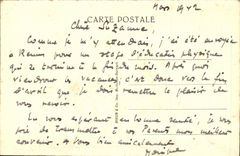 Mars 1942
CARTE POSTALE
Chère Suzanne,
Comme je m'y attendais, j'ai été envoyée
à Rennes pour un stage d'éducation physique
qui se termine à la fin du mois. Après quoi
viendront les vacances, c'est donc vers la fin
d'avril que je dois remettre le plaisir de
vous revoir.
En vous espérant en bonne santé, je vous
prie de transmettre à vos Parents mon meilleur
souvenir. A vous bien amicalement